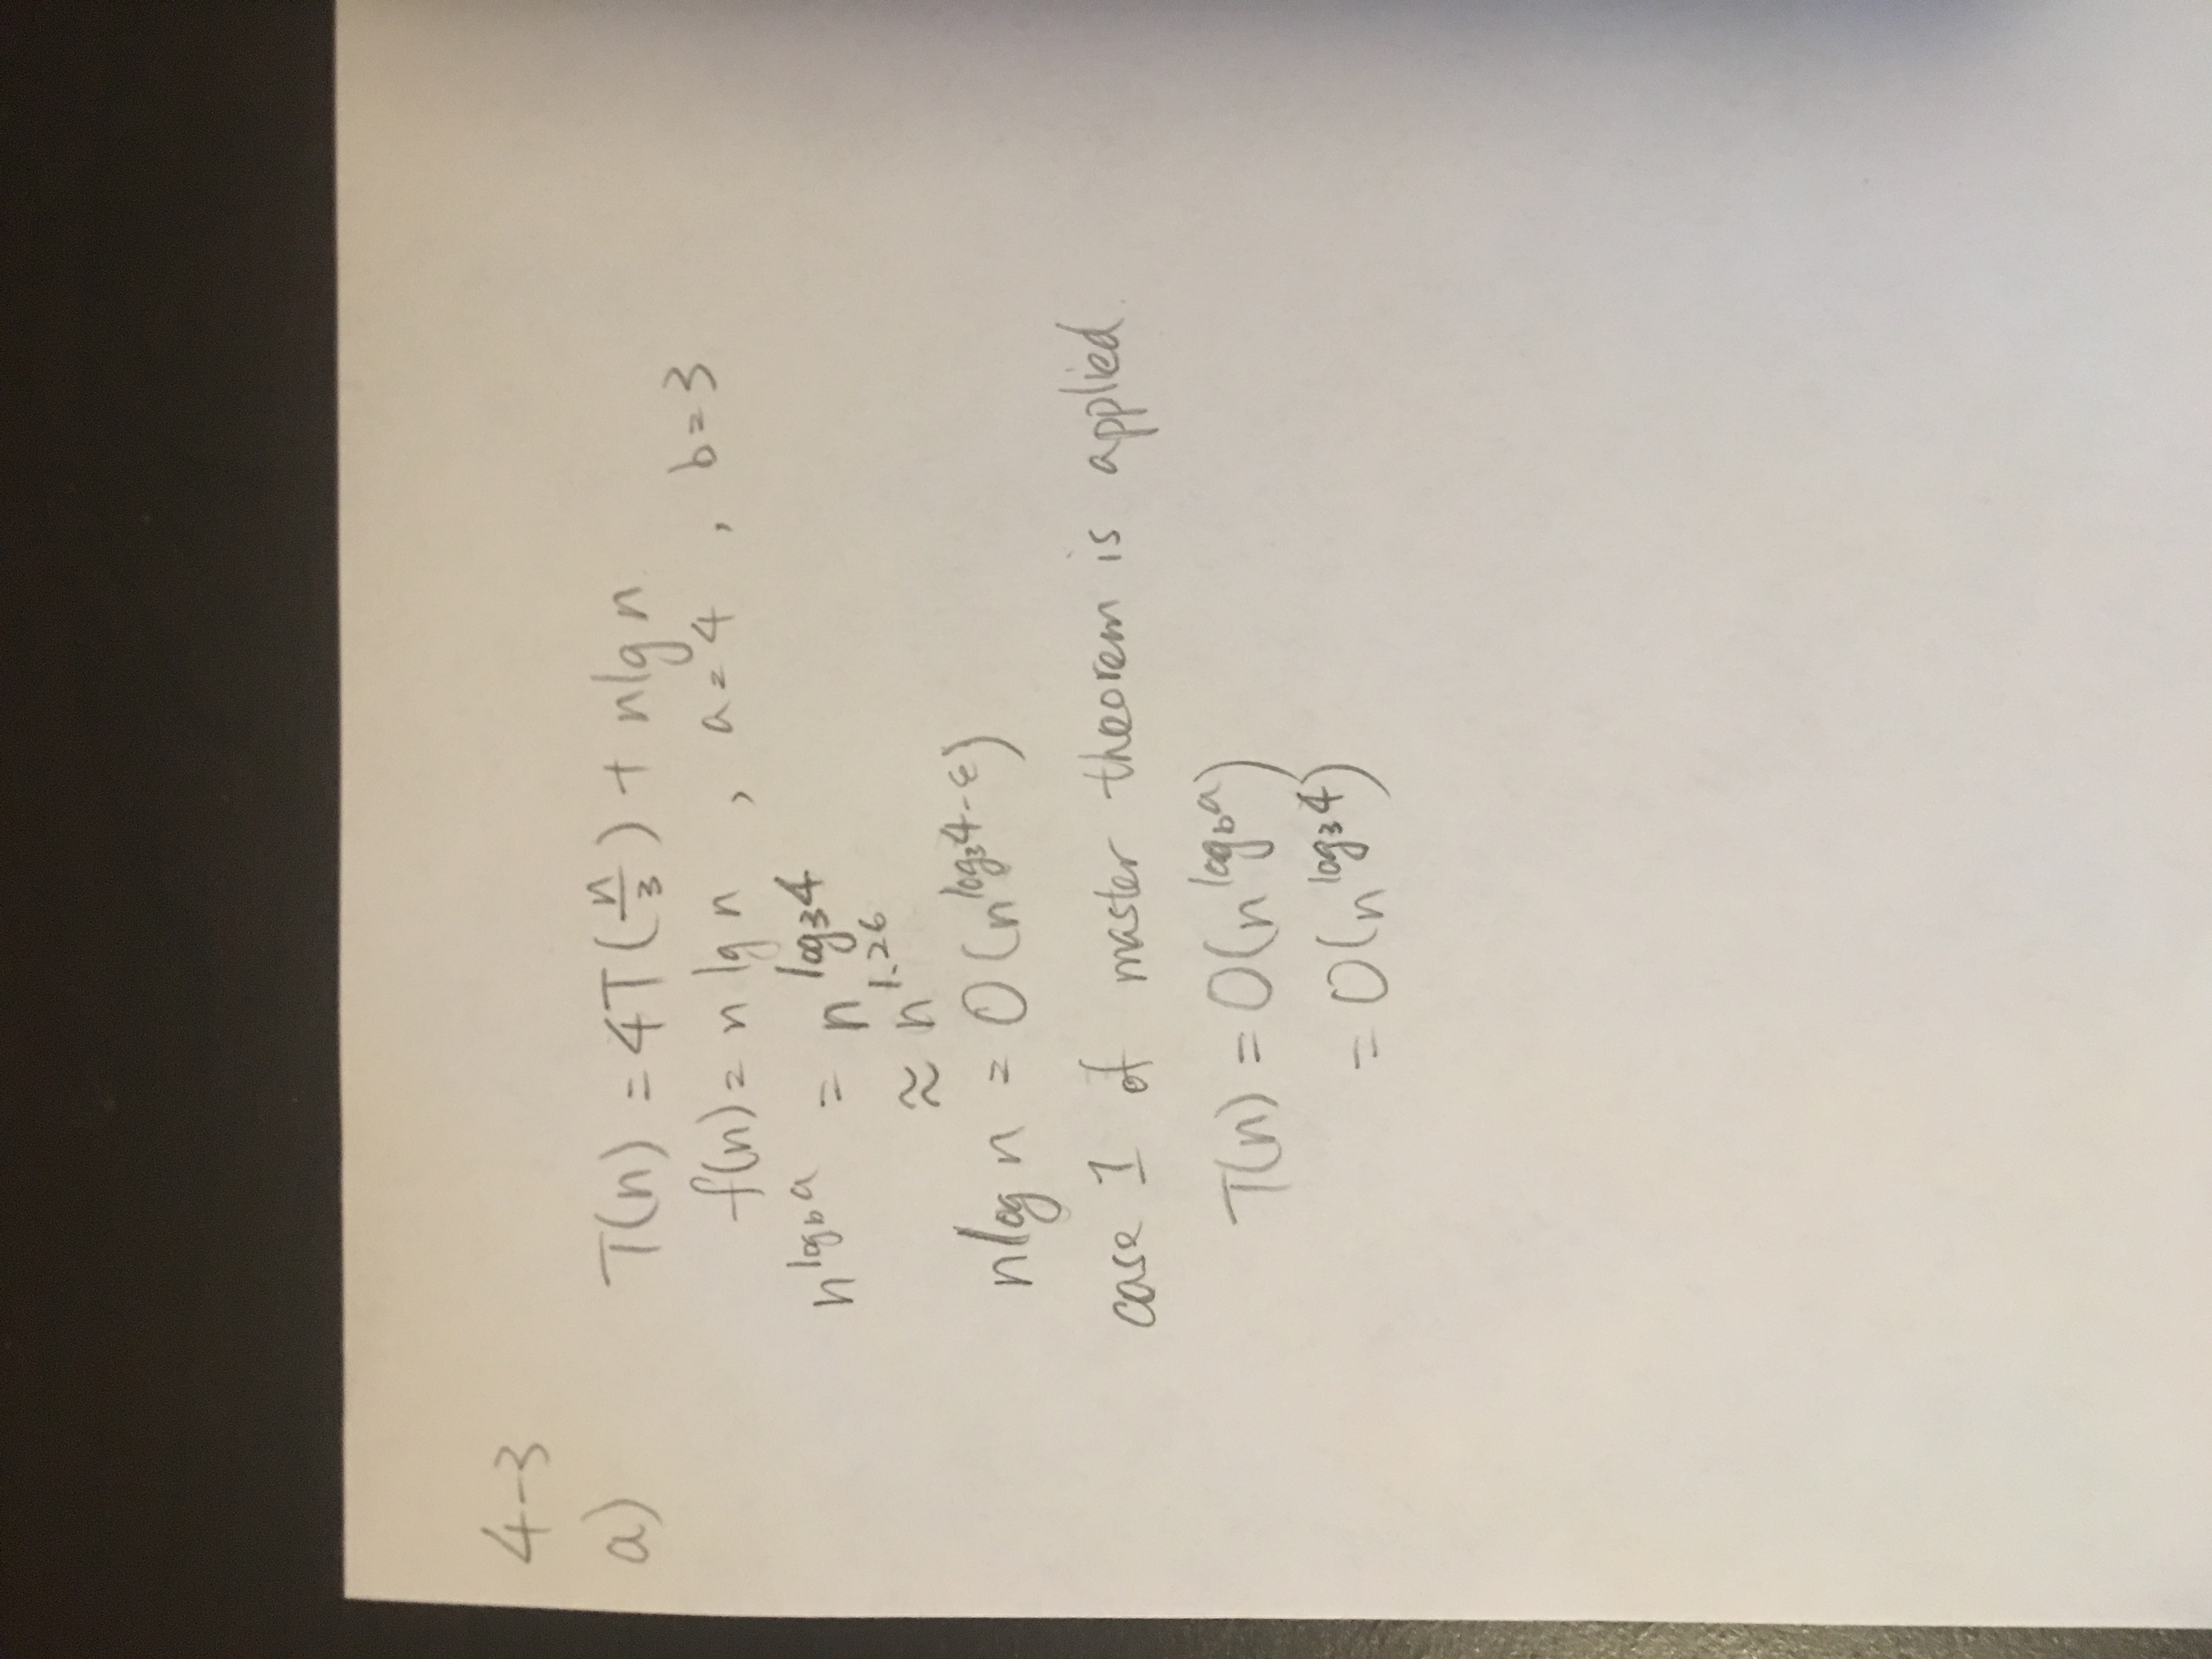 4-3
a) T(n) = 4T(n/3) + nlgn
f(n) = n lg n , a = 4 , b = 3
n^{log_b a} = n^{log_3 4}
≈ n^{1.26}
nlog n = O(n^{log_3 4-ε})
case 1 of master theorem is applied.
T(n) = O(n^{log_b a})
= O(n^{log_3 4})